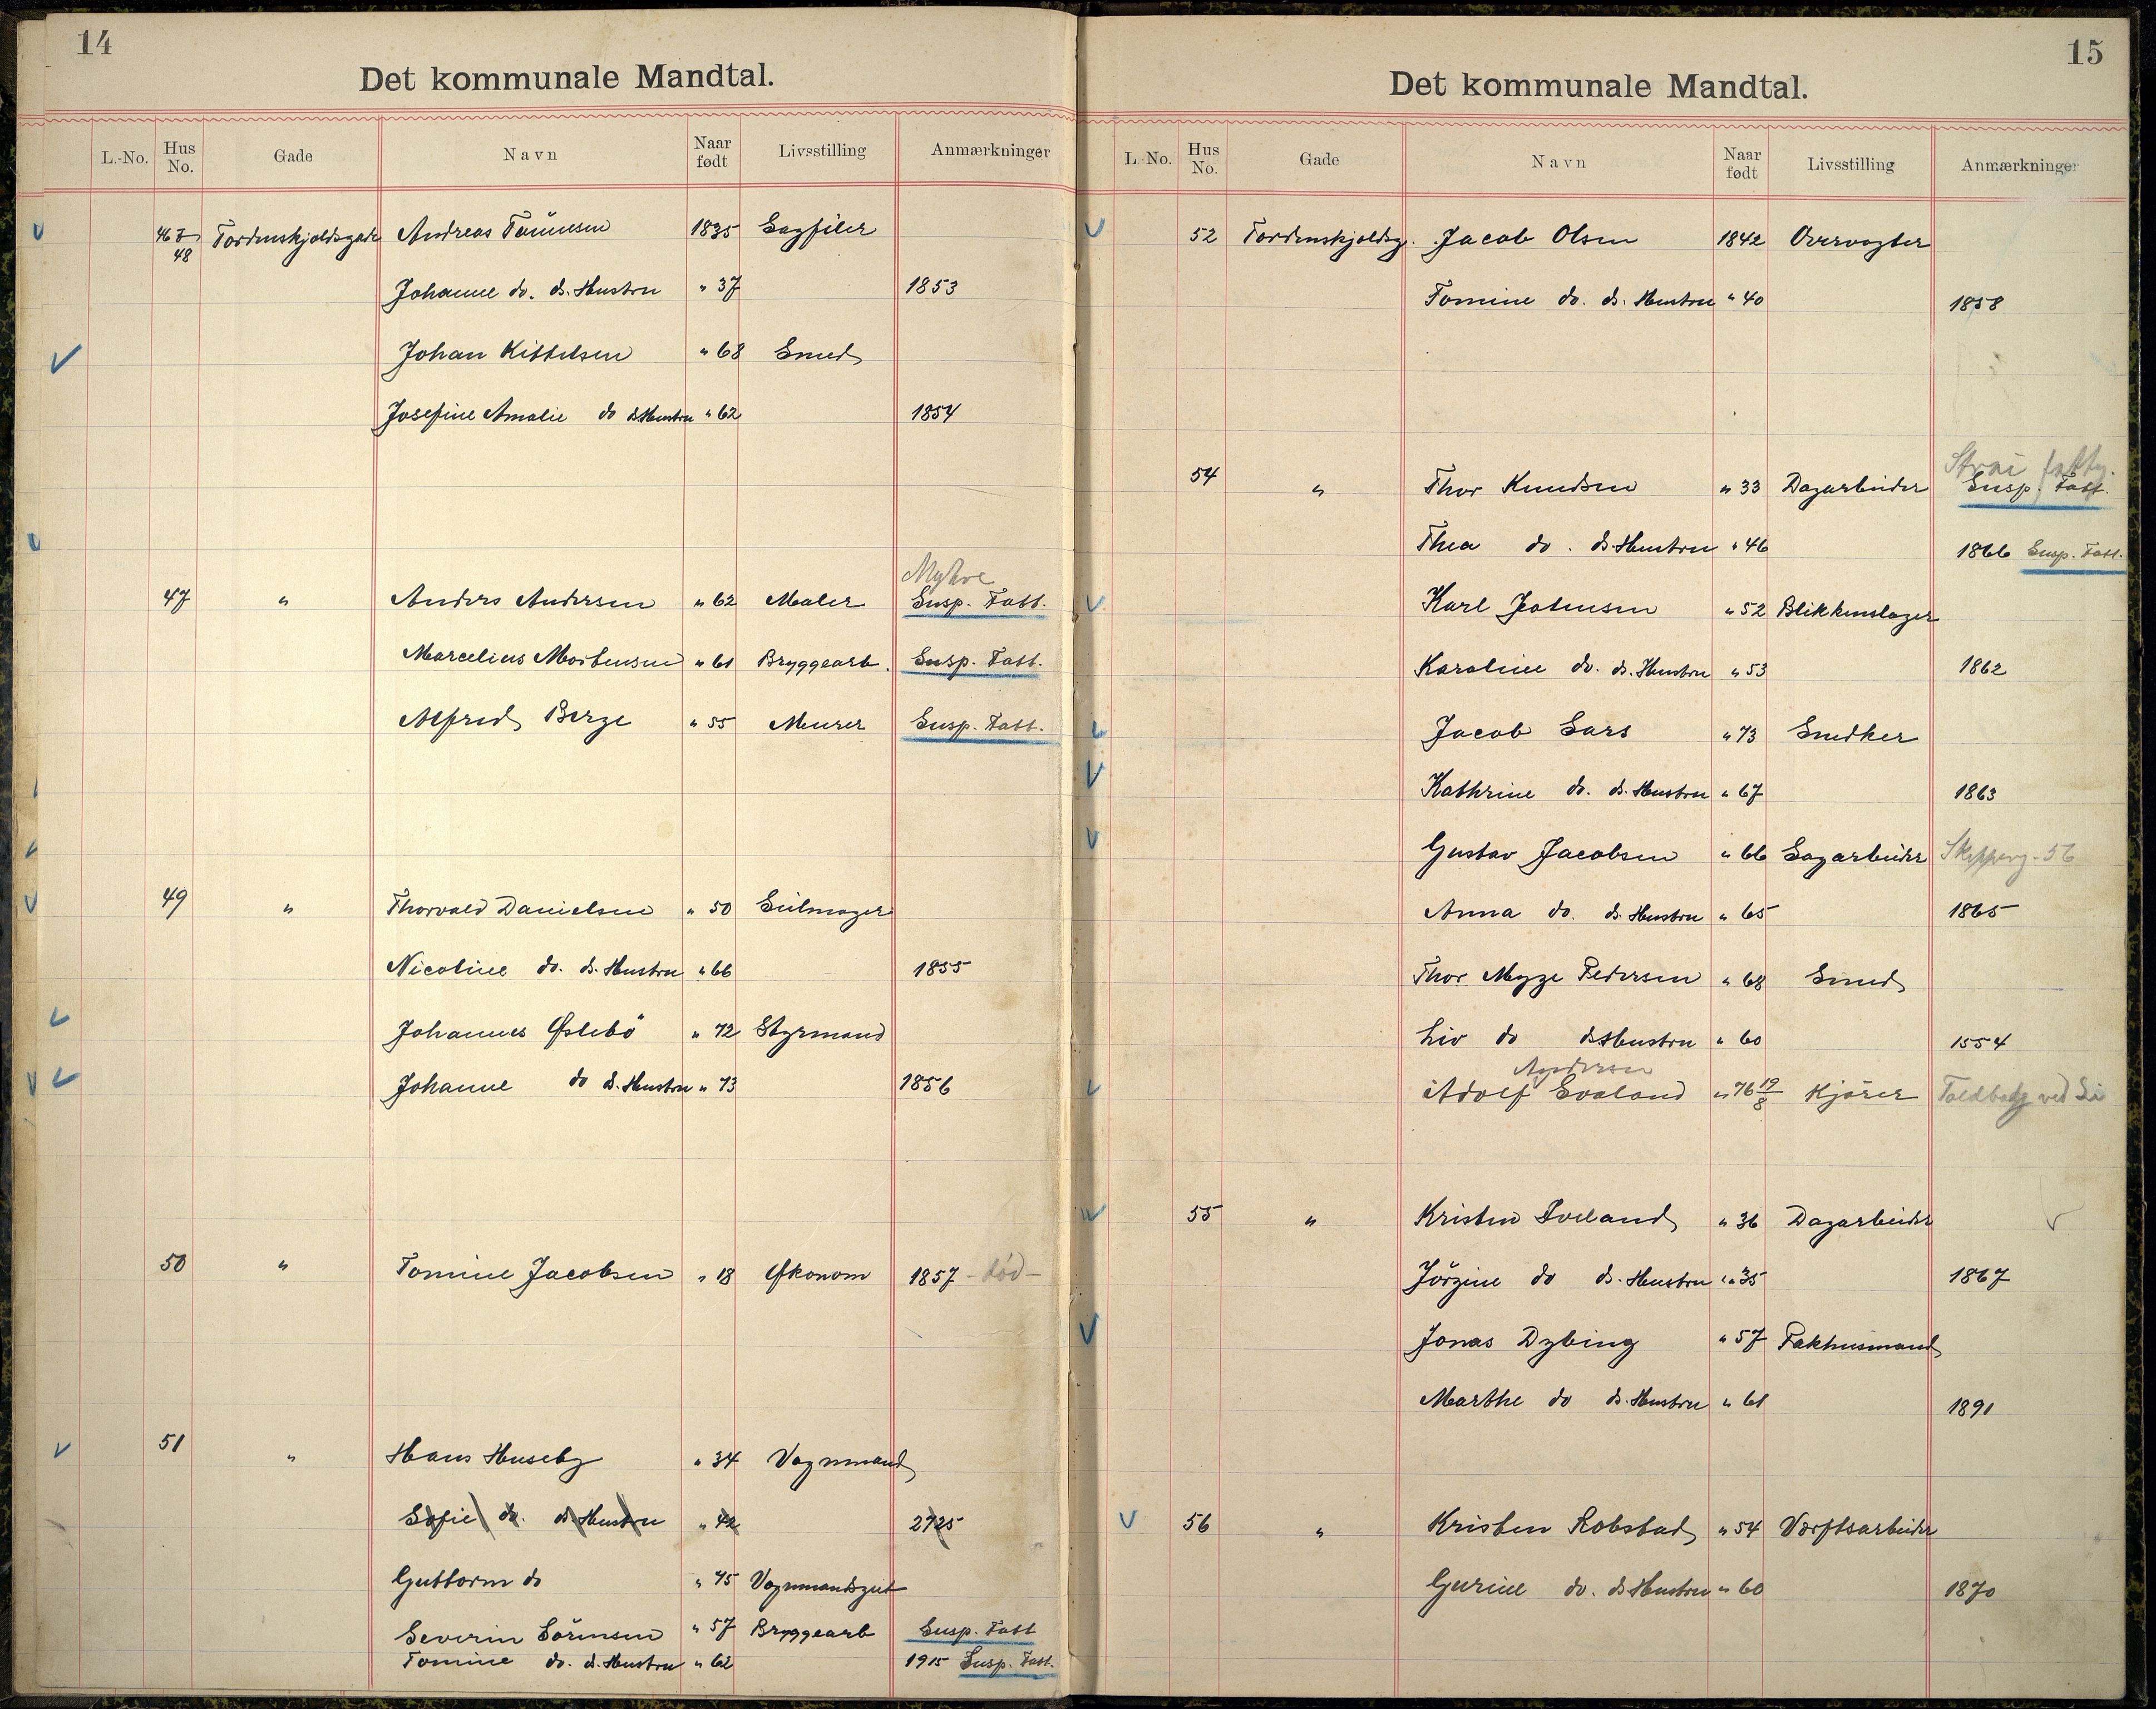 14
Det kommunale Mandtal.
L.-No. Hus No. Gade Navn Naar født Livsstilling Anmærkninger
46 & 48 Tordenskjoldsgade Andreas Tönnesen 1835 Sagfiler
Johanne do. ds. Hustru " 37 1853
Johan Kittelsen " 68 Smed
Josefine Amalie do ds Hustru " 62 1854
Myhre
47 " Anders Andersen " 62 Maler Susp. Fatt.
Marcelius Mortensen " 61 Bryggearb. Susp. Fatt.
Alfred Berge " 55 Murer Susp. Fatt.
49 " Thorvald Danielsen " 50 Seilmager
Nicoline do. ds. Hustru " 66 1855
Johannes Øslebö " 72 Styrmand
Johanne do ds. Hustru " 73 1856
50 " Tomine Jacobsen " 18 Økonom 1857 - död -
51 " Hans Huseby " 34 Vognmand
Sofie do. ds Hustru " 42 2725
Guttorm do " 75 Vognmandsgut
Severin Sörensen " 57 Bryggearb Susp. Fatt
Tomine do. ds. Hustru " 62 1915 Susp. Fatt.
15
Det kommunale Mandtal.
L.-No. Hus No. Gade Navn Naar født Livsstilling Anmærkninger
52 Tordenskjoldsg. Jacob Olsen 1842 Overvogter
Tomine do. ds. Hustru " 40 1858
Strai fattg.
54 " Thor Knudsen " 33 Dagarbeider Susp. Fatt.
Thea do. ds. Hustru " 46 1866 Susp. Fatt.
Karl Jotunsen " 52 Blikkenslager
Karoline do. ds. Hustru " 53 1862
Jacob Lars " 73 Snedker
Kathrine do. ds. Hustru " 67 1863
Gustav Jacobsen " 66 Sagarbeider Skipperg. 56
Anna do. ds. Hustru " 65 1865
Thor Myge Pedersen " 68 Smed
Liv do ds Hustru " 60 1554
Andersen
Adolf Svaland " 76 19/8 Kjörer Toldbodg ved
55 " Kristen Iveland " 36 Dagarbeider
Jörgine do ds. Hustru " 35 1867
Jonas Dybing " 57 Pakhusmand
Marthe do ds. Hustru " 61 1891
56 " Kristen Robstad " 54 Værftsarbeider
Gurine do. ds Hustru " 60 1870